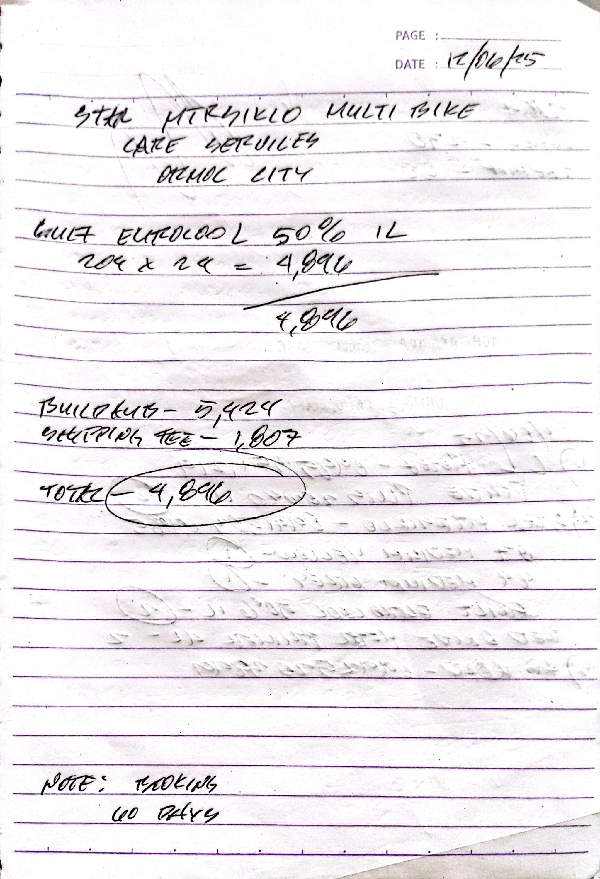 PAGE :
DATE : 12/06/25
STAR MTRSIKLO MULTI BIKE
CARE SERVICES
ORMOC CITY
GULF EUROCOOL 50% 1L
204 x 24 = 4,896
4,896
BUILDHUB - 5,424
SHIPPING FEE - 1,807
TOTAL - 4,896
NOTE: BOOKING
60 DAYS